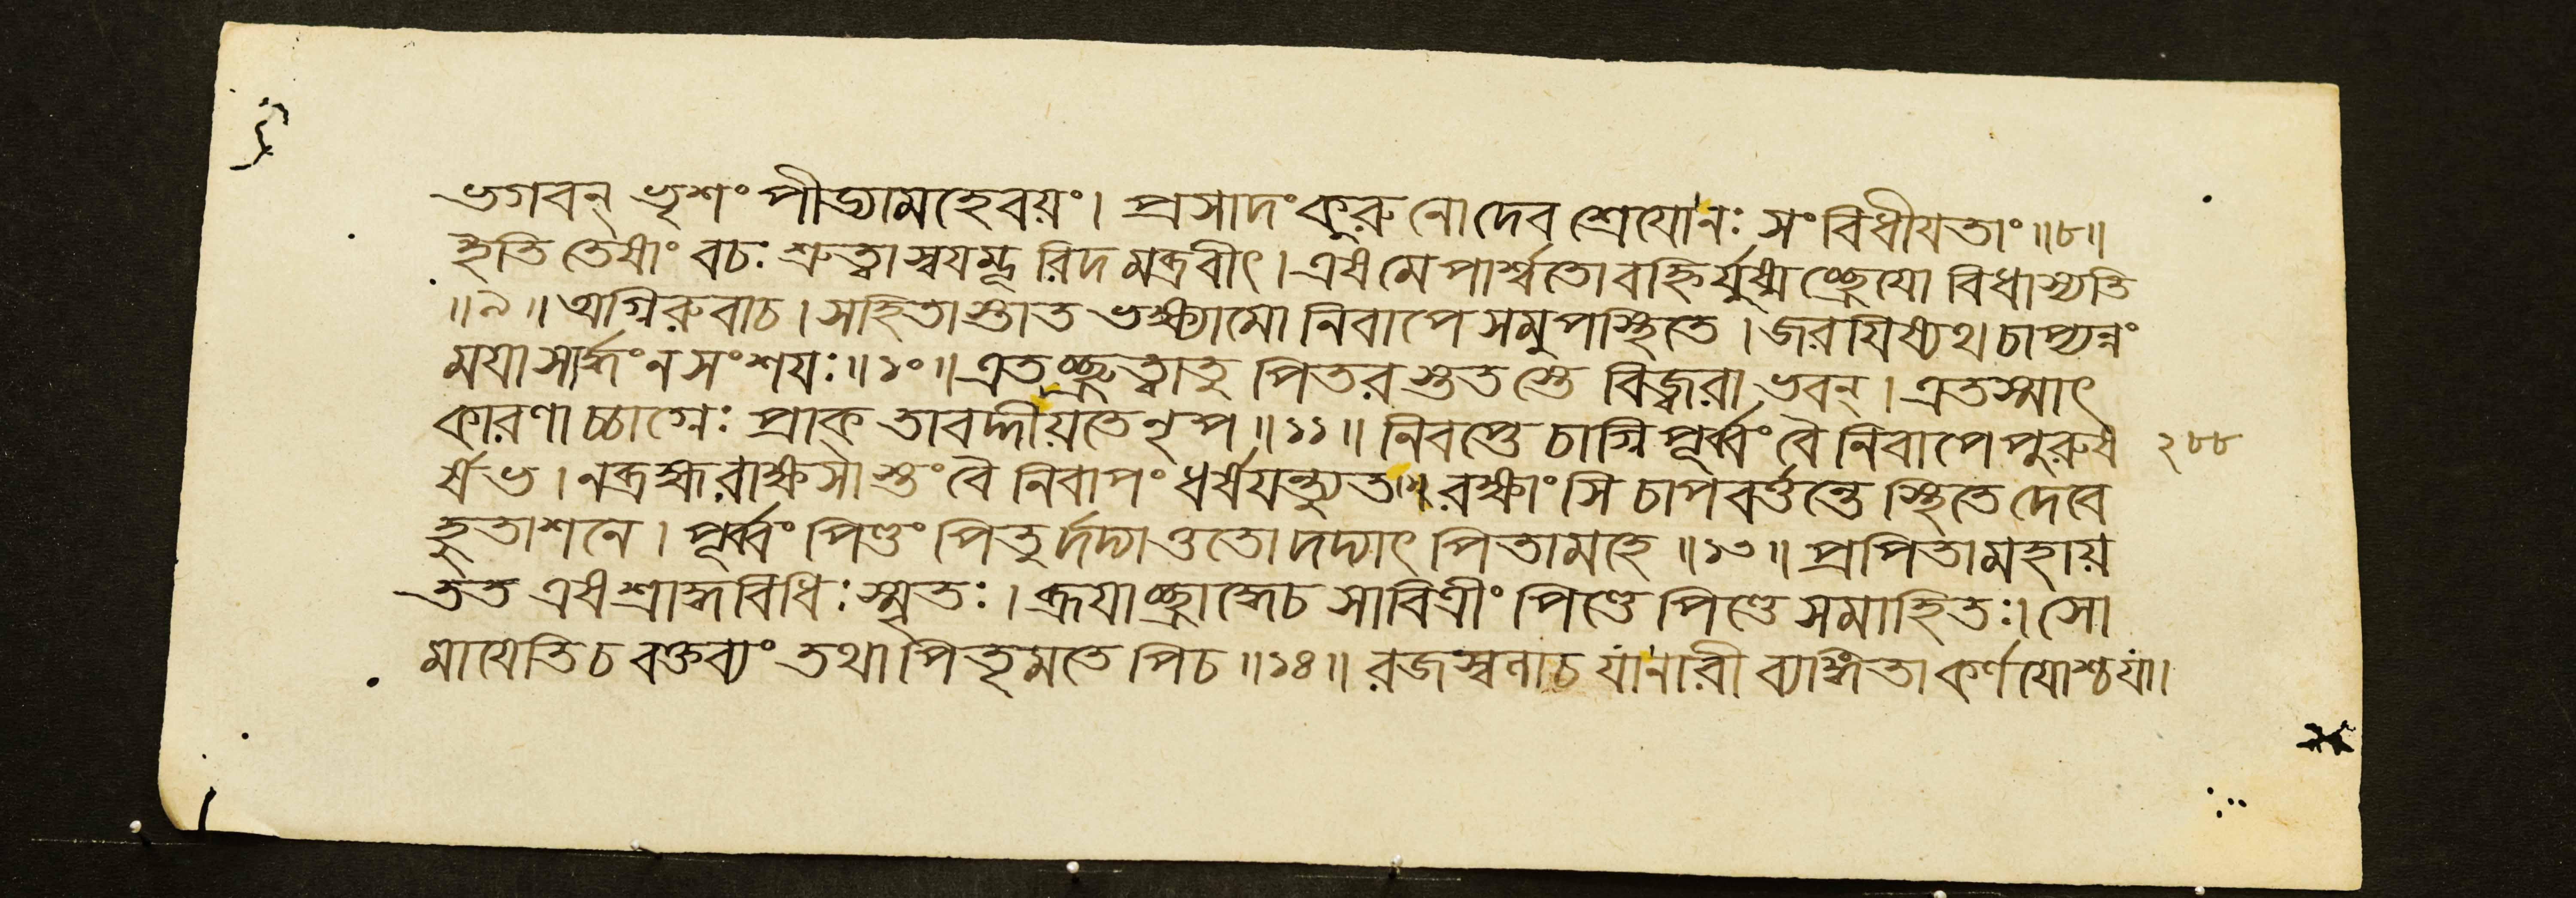 ভগবন্ ভৃশং পীড্যামহেবয়ং। প্রসাদংকুরু নো দেব শ্রেযোনঃ সংবিধীযতাং॥৮॥
ইতি তেষাং বচঃ শ্রুত্বা স্বযম্ভূ রিদ মব্রবীৎ। এষ মে পার্শ্বতো বহ্নি র্যুষ্মচ্ছ্রেযো বিধাস্যতি
॥৯॥ অগ্নিরুবাচ। সহিতাস্তাত ভক্ষ্যামো নিবাপে সমুপস্থিতে। জরযিষ্যথ চাপ্যন্নং
মযা সার্দ্ধং ন সংশযঃ॥১০॥ এতচ্ছ্রুত্বাতু পিতর স্তত স্তে বিজ্বরা ভবন্। এতস্মাৎ
কারণাচ্চাগ্নেঃ প্রাক্ তাবদ্দীয়তে নৃপ॥১১॥ নিবপ্তে চাগ্নি পূর্ব্বং বৈ নিবাপে পুরুষ ২৮৮
র্ষভ। নব্রহ্ম রাক্ষসা স্তং বৈ নিবাপং ধর্ষযন্ত্যুত॥ রক্ষাংসি চাপবর্ত্তন্তে স্থিতে দেবে
হুতাশনে। পূর্ব্বং পিণ্ডং পিতু র্দদ্যাত্ততো দদ্যাৎ পিতামহে॥১৩॥ প্রপিতামহায়
তত এষ শ্রাদ্ধবিধিঃ স্মৃতঃ। ব্রূযাচ্ছ্রাদ্ধেচ সাবিত্রীং পিণ্ডে পিণ্ডে সমাহিতঃ। সো
মাযেতি চ বক্তব্যং তথা পিতৃমতে পিচ॥১৪॥ রজস্বলাচ যা নারী ব্যঙ্গিতা কর্ণযোশ্চ যা।